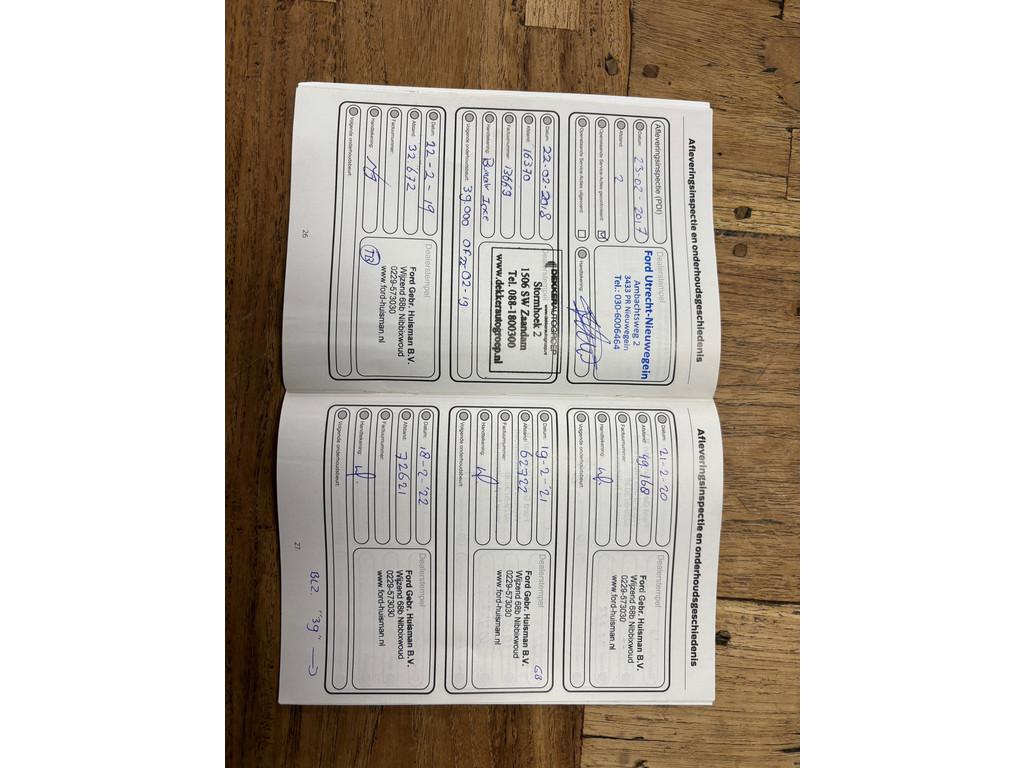 Afleveringsinspectie en onderhoudsgeschiedenis
Afleveringsinspectie (PDI)
Datum: 23-02-2017
Afstand: 2
Openstaande Service Acties gecontroleerd:
Openstaande Service Acties uitgevoerd:
Dealerstempel
Ford Utrecht-Nieuwegein
Ambachtsweg 2
3433 PR Nieuwegein
Tel.: 030-6006464
Handtekening:
Datum: 22-02-2018
Afstand: 16370
Factuurnummer: 13669
Handtekening:
Volgende onderhoudsbeurt: 39.000 OF 22-02-19
DEKKERAUTOGROEP
Stormhoek 2
1506 SW Zaandam
Tel. 088-1800300
www.dekkerautogroep.nl
Datum: 22-2-19
Afstand: 32.672
Factuurnummer:
Handtekening:
Volgende onderhoudsbeurt:
Dealerstempel
Ford Gebr. Huisman B.V.
Wijzend 68b Nibbixwoud
0229-573030
www.ford-huisman.nl
TB
26
Afleveringsinspectie en onderhoudsgeschiedenis
Datum: 21-2-20
Afstand: 49.168
Factuurnummer:
Handtekening:
Volgende onderhoudsbeurt:
Dealerstempel
Ford Gebr. Huisman B.V.
Wijzend 68b Nibbixwoud
0229-573030
www.ford-huisman.nl
Datum: 19-2-'21
Afstand: 62722
Factuurnummer:
Handtekening:
Volgende onderhoudsbeurt:
Dealerstempel
Ford Gebr. Huisman B.V.
Wijzend 68b Nibbixwoud
0229-573030
www.ford-huisman.nl
GB
Datum: 18-2-'22
Afstand: 72621
Factuurnummer:
Handtekening:
Volgende onderhoudsbeurt:
Dealerstempel
Ford Gebr. Huisman B.V.
Wijzend 68b Nibbixwoud
0229-573030
www.ford-huisman.nl
27
BLZ. "39" →